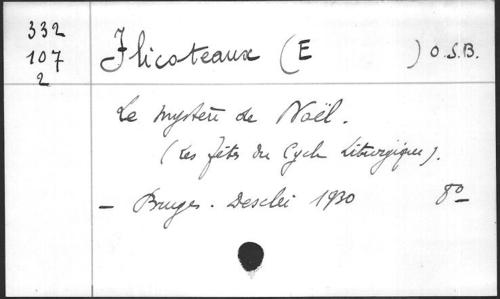 332
107
2
Flicoteaux (E ) O.S.B.
Le mystère de Noël.
(Les fêtes du Cycle Liturgique).
- Bruges. Desclée 1930 8º